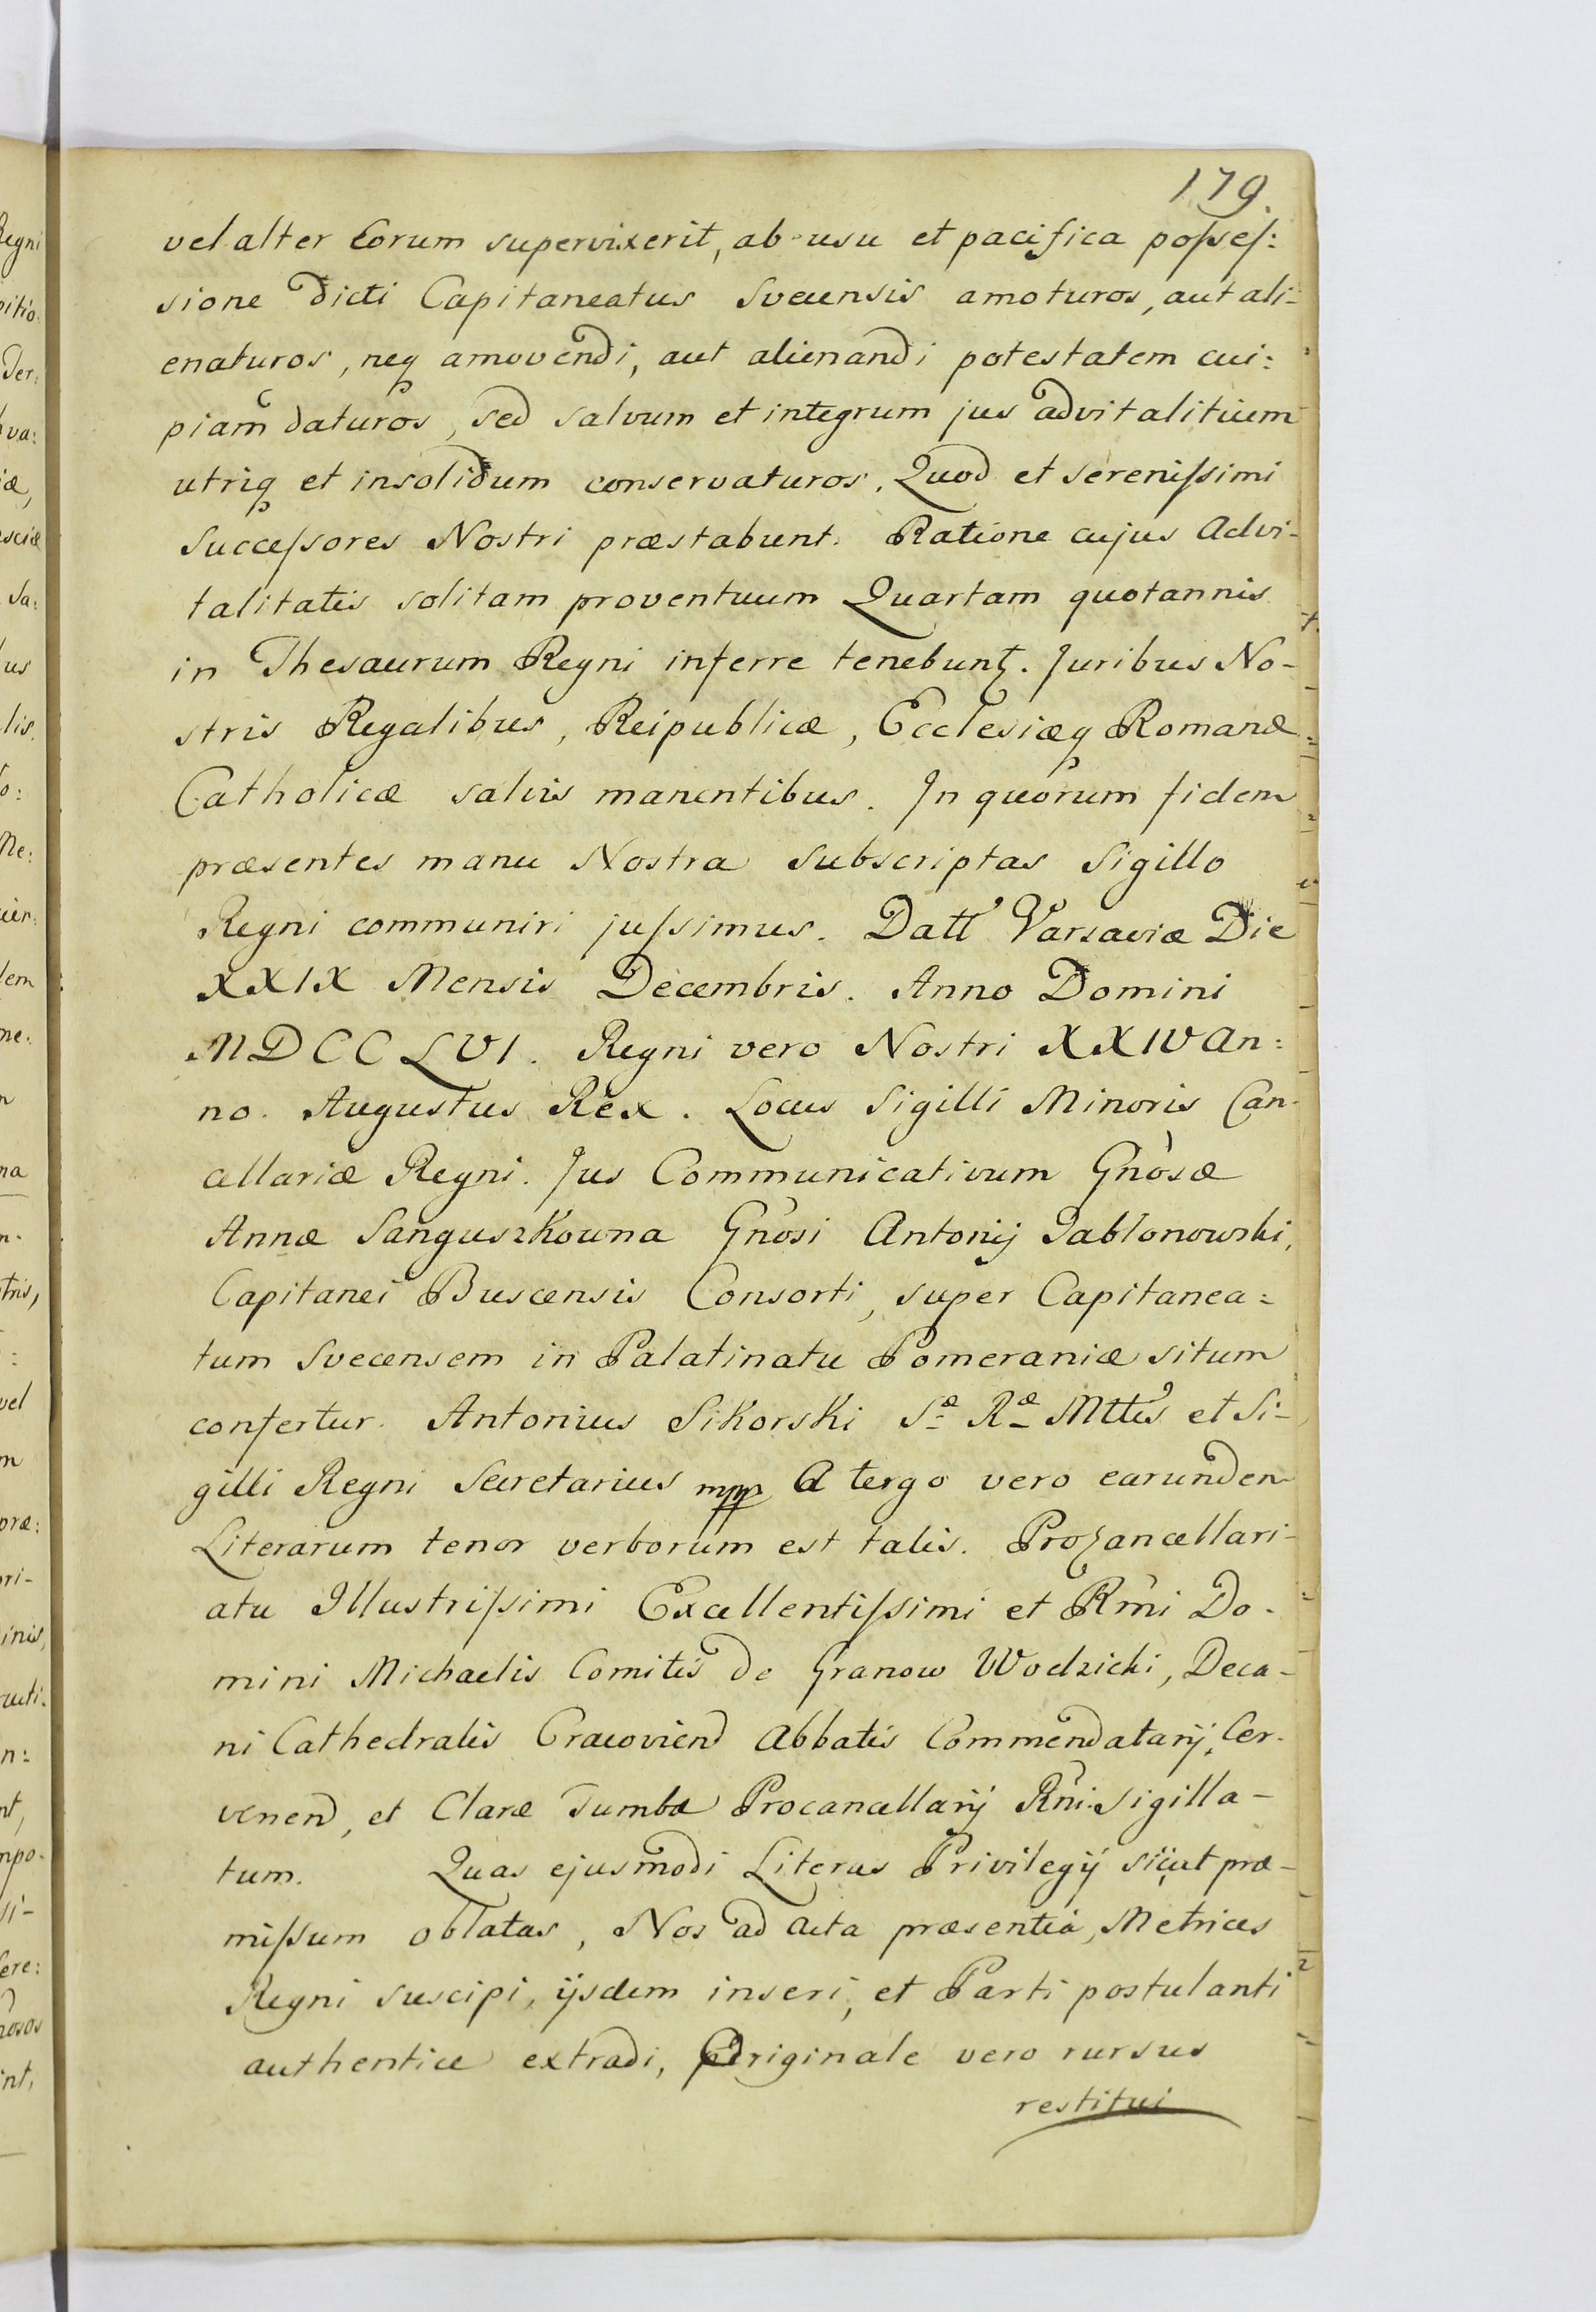 179.
vel alter Eorum supervixerit, ab usu et pacifica poſseſ:
sione dicti Capitaneatus Svecensis amoturos, aut ali-
enaturos, neq amovendi, aut alienandi potestatem cui:
piam daturos, sed salvum et integrum jus advitalitium
utriq et insolidum conservaturos. Quod et Sereniſsimi
Succeſsores Nostri præstabunt. Ratione cujus Advi-
talitatis solitam proventuum Quartam quotannis
in Thesaurum Regni inferre tenebunt. Juribus No-
stris Regalibus, Reipublicæ, Ecclesiæq Romanæ
Catholicæ salvis manentibus. In quorum fidem
præsentes manu Nostra subscriptas Sigillo
Regni communiri juſsimus. Datt Varsaviæ Die
XXIX Mensis Decembris. Anno Domini
MDCCLVI. Regni vero Nostri XXIV An:
no. Augustus Rex. Locus Sigilli Minoris Can-
cellariæ Regni. Jus Communicativum Gnosæ
Annæ Sanguszkowna Gnosi Antonij Jabłonowski,
Capitanei Buscensis Consorti, super Capitanea=
tum Svecensem in Palatinatu Pomeraniæ situm
confertur. Antonius Sikorski Sæ Ræ Mttis et Si-
gilli Regni Secretarius mpp A tergo vero earunden
Literarum tenor verborum est talis. Procancellari-
atu Illustriſsimi Excellentiſsimi et Rmi Do-
mini Michaelis Comitis de Granow Wodzicki, Deca-
ni Cathedralis Cracoviend Abbatis Commendatarij Cer-
venend, et Claræ Tumbæ Procancellarij Rni. Sigilla-
tum. Quas ejusmodi Literas Privilegij sicut præ-
miſsum oblatas, Nos ad Acta præsentia, Metrices
Regni suscipi, ijsdem inseri, et Parti postulanti
authentice extradi, Originale vero rursus
restitui